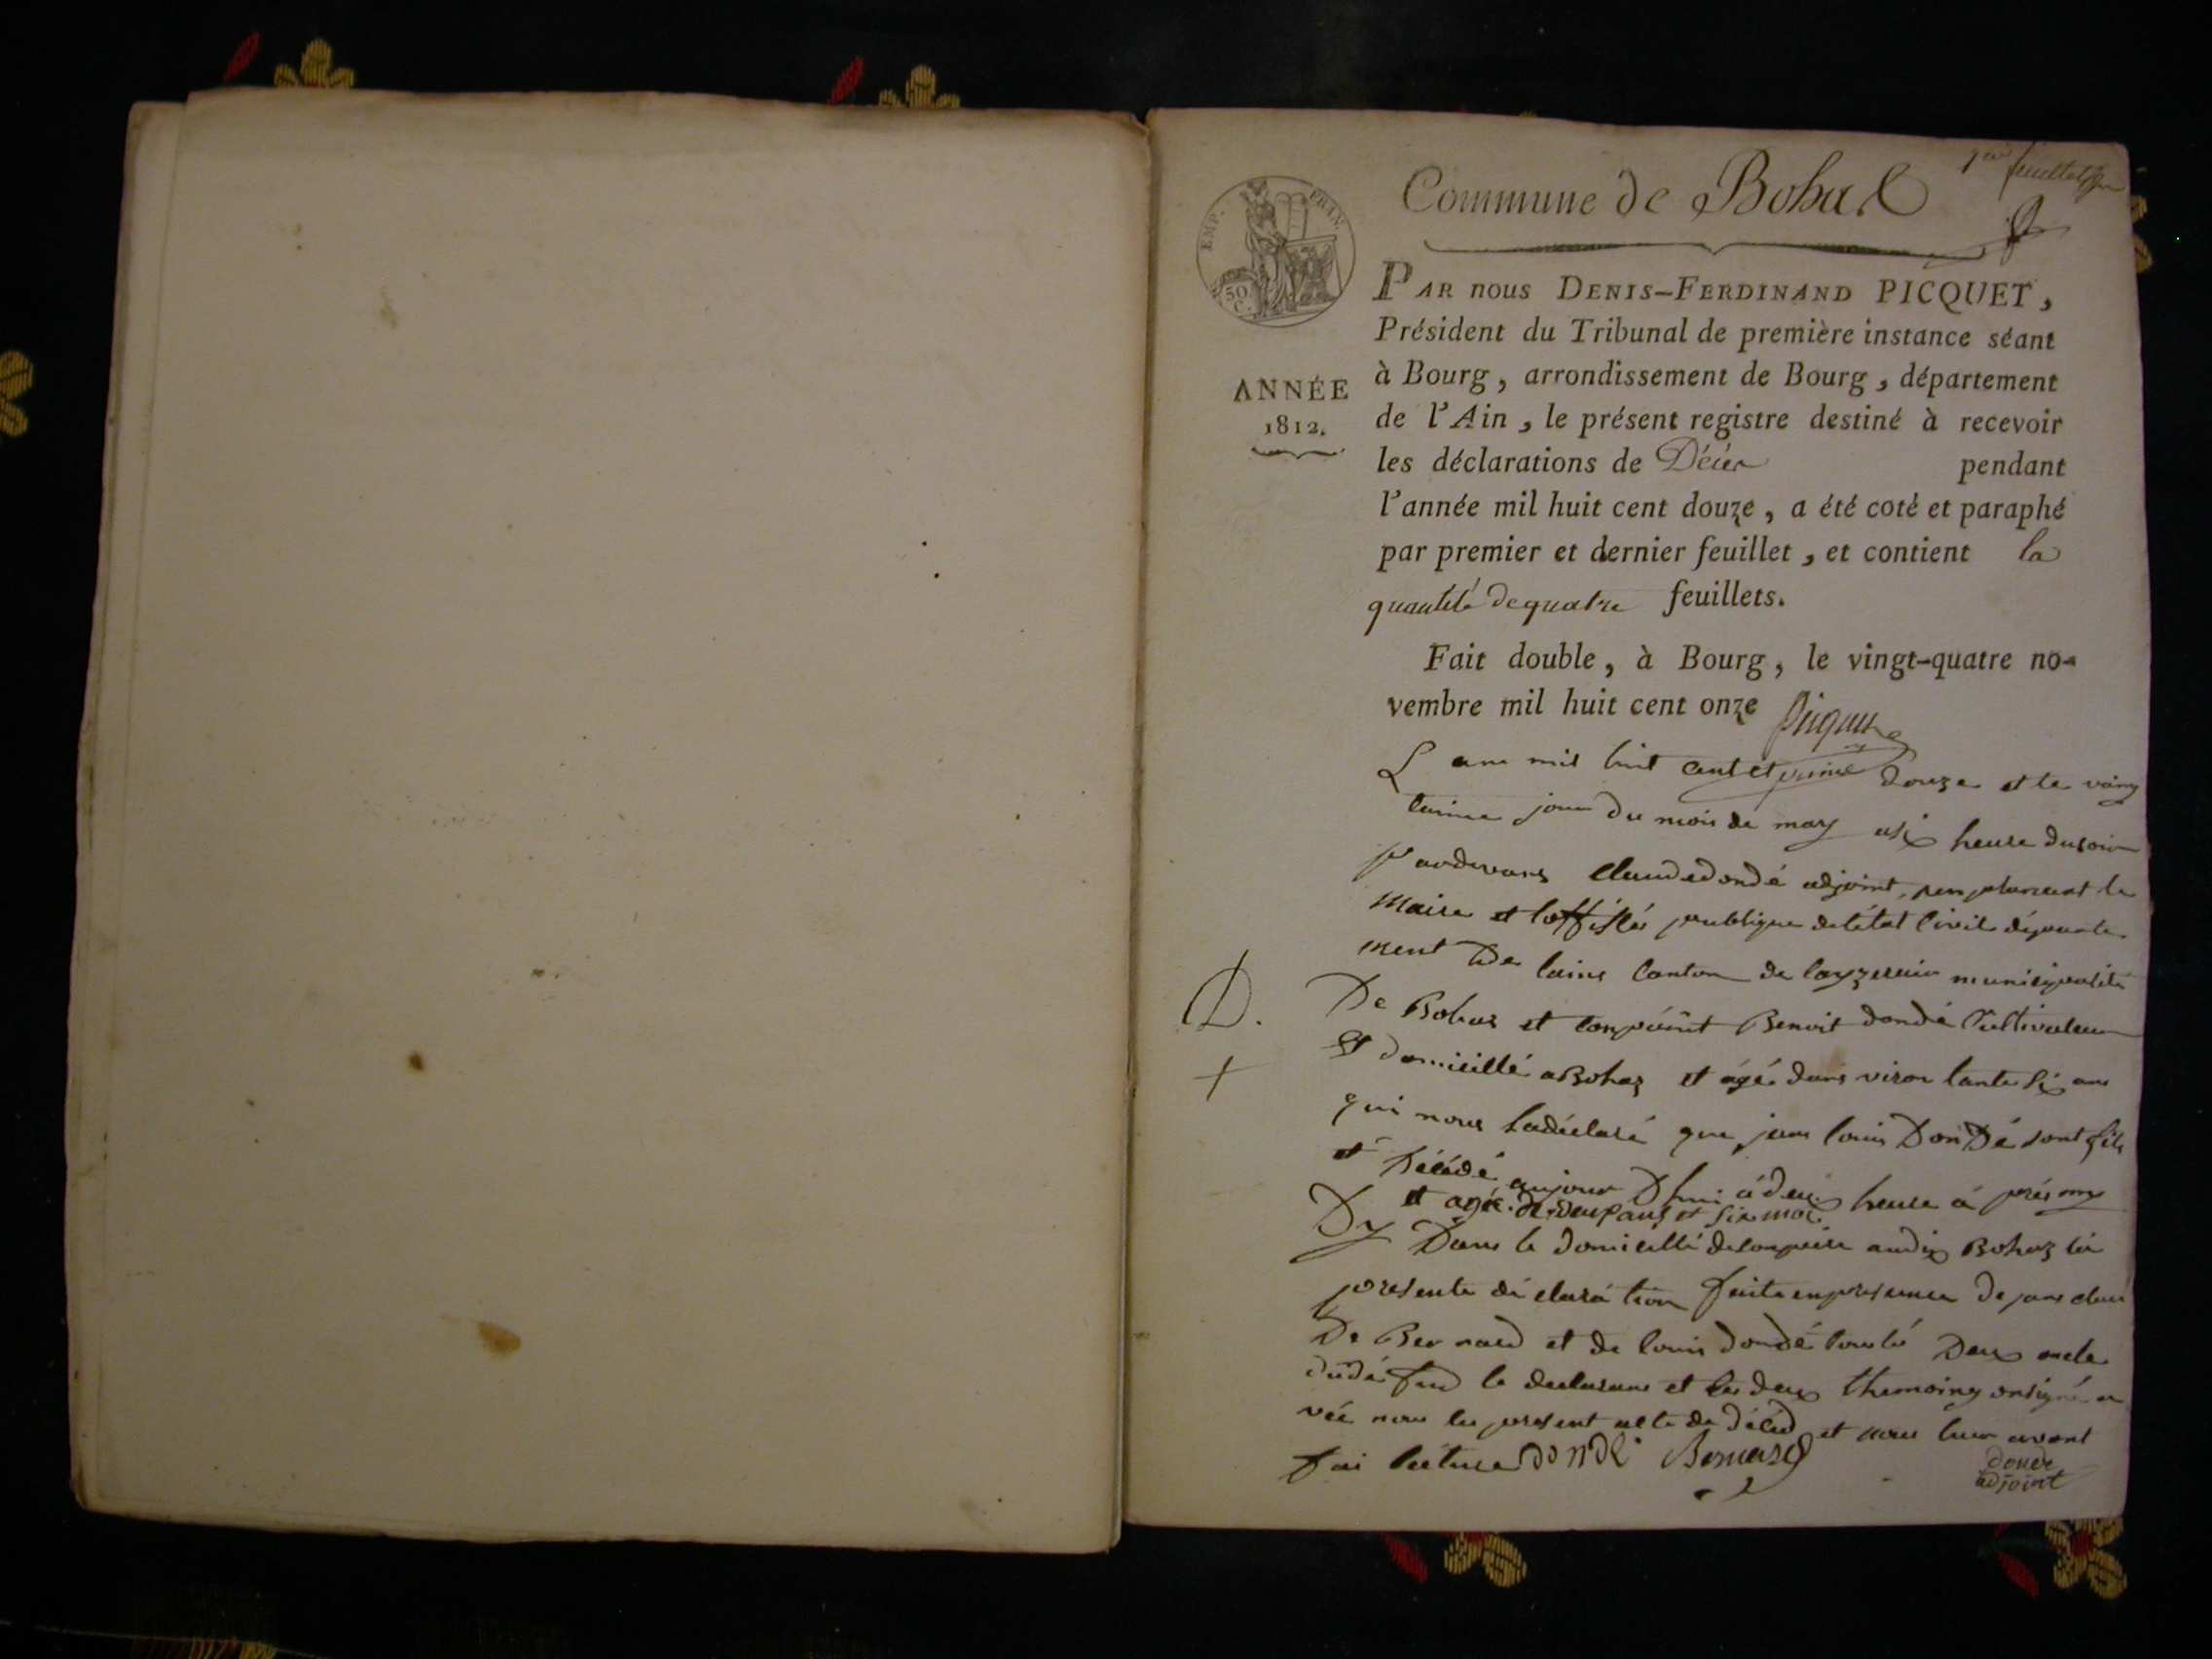 1er feuillet
Commune de Bohas
EMP. FRAN.
50 C.
PAR nous DENIS-FERDINAND PICQUET,
Président du Tribunal de première instance séant
à Bourg, arrondissement de Bourg, département
de l'Ain, le présent registre destiné à recevoir
les déclarations de Décès pendant
l'année mil huit cent douze, a été coté et paraphé
par premier et dernier feuillet, et contient la
quantité de quatre feuillets.
ANNÉE
1812.
Fait double, à Bourg, le vingt-quatre no-
vembre mil huit cent onze
Picquet
L an mil huit cent et douze et le
jour du mois de mars a six heure du soir
pardevans Claude dondé adjoint, le
Maire et loffisier publique de létat Civil départe
ment De lains Canton de municipalité
De Bohas et Benoit dondé Cultivateur
D.
Et domicillé a Bohas et agé dans viron tante six ans
+
qui nous la déclaré que jean louis DonDé sont fils
et Décédé aujour Dhui à deux heure à prés my
et agée de deux ans et six moi
Dy Dans le domicillé de son peire audix Bohaz la
presente déclaration faite en presence De jean
De Bernard et de louis dondé Deux oncle
dudé le declarans et les deux themoing on signé a
vée nous le present acte de décéd et nous leur avont
fai lecture dondé Bernard
donde
adjoint